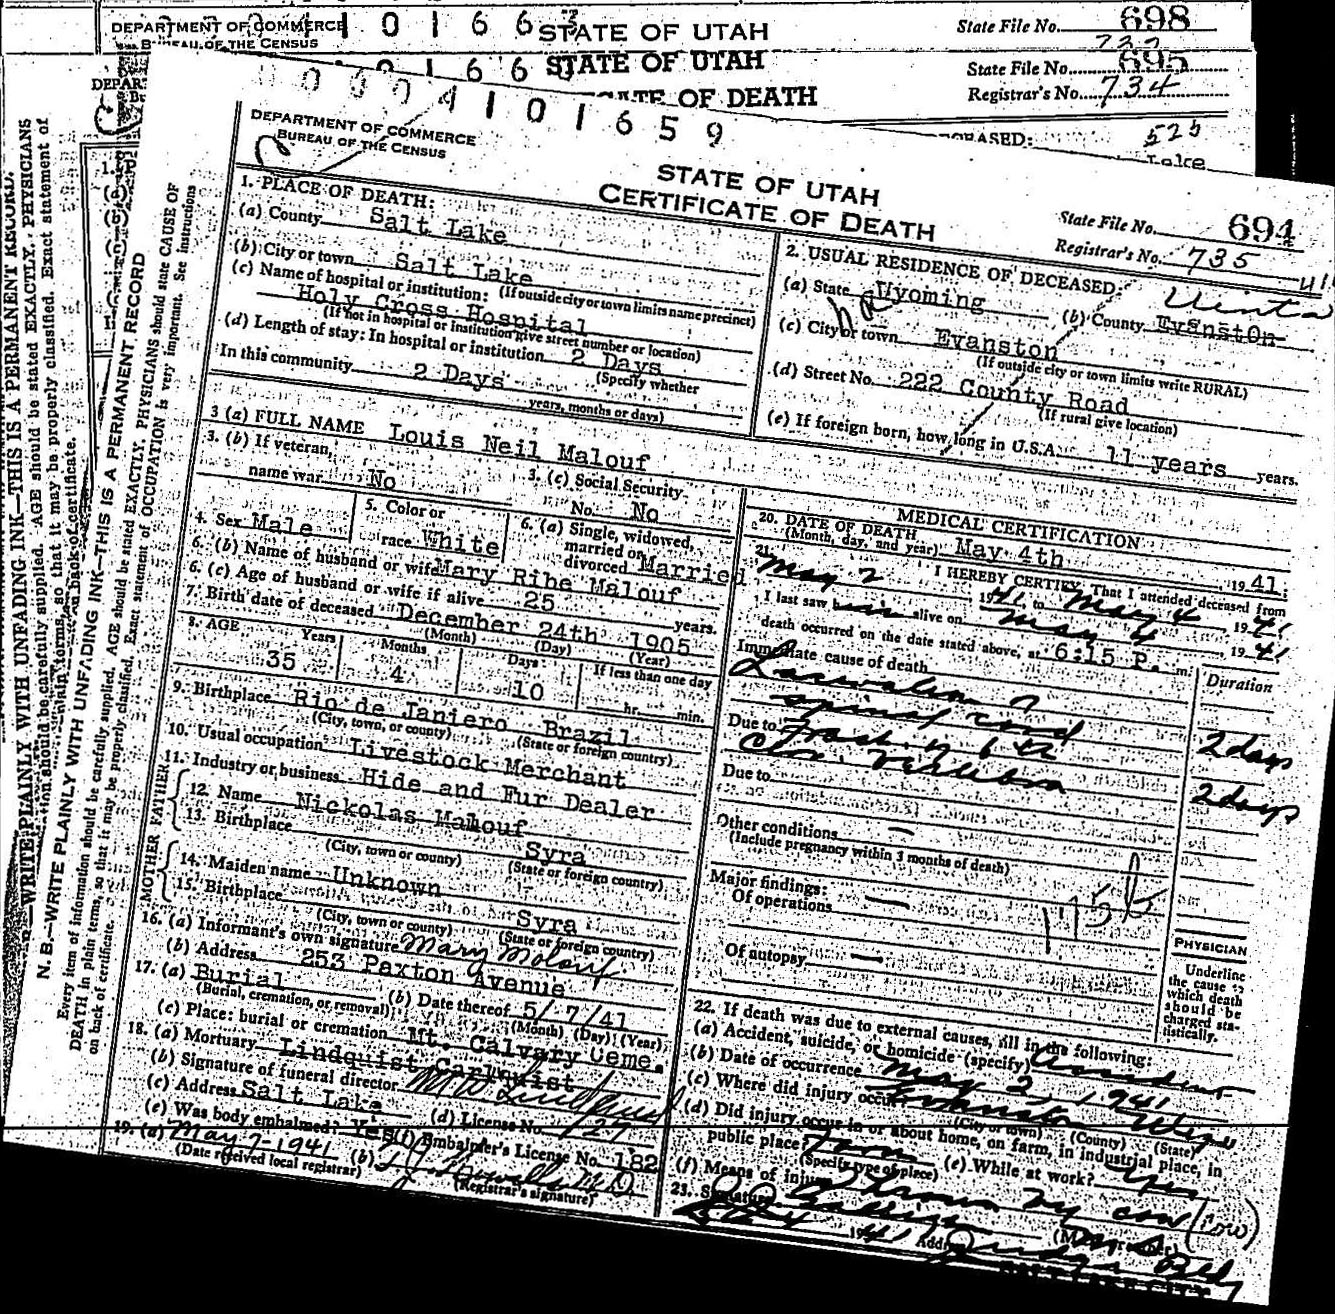 DEPARTMENT OF COMMERCE
BUREAU OF THE CENSUS
1 0 1 6 6
STATE OF UTAH
State File No. 698
STATE OF UTAH
State File No. 695
CATE OF DEATH
Registrar's No. 734
525
Lake
0 0 0 0 4 1 0 1 6 5 9
DEPARTMENT OF COMMERCE
BUREAU OF THE CENSUS
STATE OF UTAH
CERTIFICATE OF DEATH
State File No. 694
Registrar's No. 735
1. PLACE OF DEATH:
(a) County Salt Lake
(b) City or town Salt Lake
(If outside city or town limits name precinct)
(c) Name of hospital or institution:
Holy Cross Hospital
(If not in hospital or institution give street number or location)
(d) Length of stay: In hospital or institution 2 Days
(Specify whether
In this community 2 Days
years, months or days)
2. USUAL RESIDENCE OF DECEASED:
Uinta
(a) State Wyoming (b) County Evanston
(c) City or town Evanston
(If outside city or town limits write RURAL)
(d) Street No. 222 County Road
(If rural give location)
(e) If foreign born, how long in U.S.A. 11 years years.
3 (a) FULL NAME Louis Neil Malouf
3. (b) If veteran,
name war No
3. (c) Social Security
No. No
4. Sex Male
5. Color or
race White
6. (a) Single, widowed,
married or
divorced Married
6. (b) Name of husband or wife Mary Ribe Malouf
6. (c) Age of husband or wife if alive 25 years.
7. Birth date of deceased December 24th 1905
(Month) (Day) (Year)
8. AGE Years Months Days If less than one day
35 4 10 hr. min.
9. Birthplace Rio de Janiero Brazil
(City, town, or county) (State or foreign country)
10. Usual occupation Livestock Merchant
11. Industry or business Hide and Fur Dealer
FATHER
12. Name Nickolas Malouf
13. Birthplace Syra
(City, town or county) (State or foreign country)
MOTHER
14. Maiden name Unknown
15. Birthplace Syra
(City, town or county) (State or foreign country)
16. (a) Informant's own signature Mary Malouf
(b) Address 253 Paxton Avenue
17. (a) Burial (b) Date thereof 5/ 7/41
(Burial, cremation, or removal) (Month) (Day) (Year)
(c) Place: burial or cremation Mt. Calvary Ceme.
18. (a) Mortuary Lindquist Carlquist
(b) Signature of funeral director
(c) Address Salt Lake (d) License No. 127
(e) Was body embalmed? Yes (f) Embalmer's License No. 182
19. (a) May 7-1941 (b) M D
(Date received local registrar) (Registrar's signature)
MEDICAL CERTIFICATION
20. DATE OF DEATH
(Month, day, and year) May 4th 1941.
21. I HEREBY CERTIFY, That I attended deceased from
May 2 1941 to May 4 1941
I last saw him alive on May 4 1941
death occurred on the date stated above, at 6:15 P. m.
Immediate cause of death Duration
Laceration of
spinal cord 2 days
Due to Frac. of 6 th
Cer. Vertebra 2 days
Due to
Other conditions —
(Include pregnancy within 3 months of death)
Major findings:
Of operations —
175b
Of autopsy —
PHYSICIAN
Underline
the cause to
which death
should be
charged sta-
tistically.
22. If death was due to external causes, fill in the following:
(a) Accident, suicide, or homicide (specify) Accident
(b) Date of occurrence May 2, 1941
(c) Where did injury occur? Evanston Wyo
(City or town) (County) (State)
(d) Did injury occur in or about home, on farm, in industrial place, in
public place? Farm (e) While at work? Yes
(Specify type of place)
(f) Means of injury Thrown by cow (Cow)
23. Signature
1941 Address Judge Bldg
N. B.—WRITE PLAINLY WITH UNFADING INK—THIS IS A PERMANENT RECORD
Every item of information should be carefully supplied. AGE should be stated EXACTLY. PHYSICIANS should state CAUSE OF
DEATH in plain terms, so that it may be properly classified. Exact statement of OCCUPATION is very important. See instructions
on back of certificate.